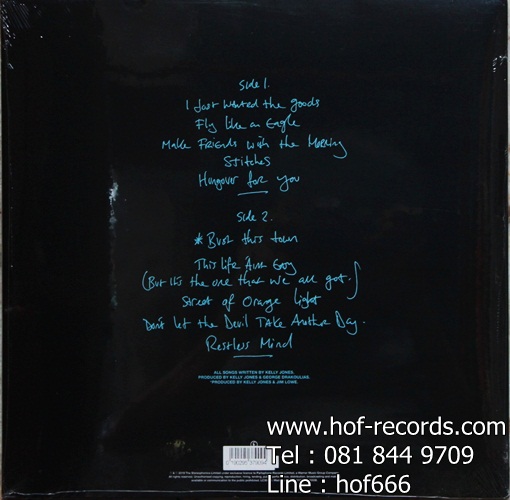 Side 1.
I Just Wanted the Goods
Fly Like an Eagle
Make Friends with the Morning
Stitches
Hungover for you
Side 2.
*Bust this town
This life Ain't Easy
(But it's the one that we all got.)
Street of Orange Light
Don't let the Devil Take Another Day.
Restless Mind
ALL SONGS WRITTEN BY KELLY JONES.
PRODUCED BY KELLY JONES & GEORGE DRAKOULIAS.
*PRODUCED BY KELLY JONES & JIM LOWE.
www.hof-records.com
Tel : 081 844 9709
Line : hof666